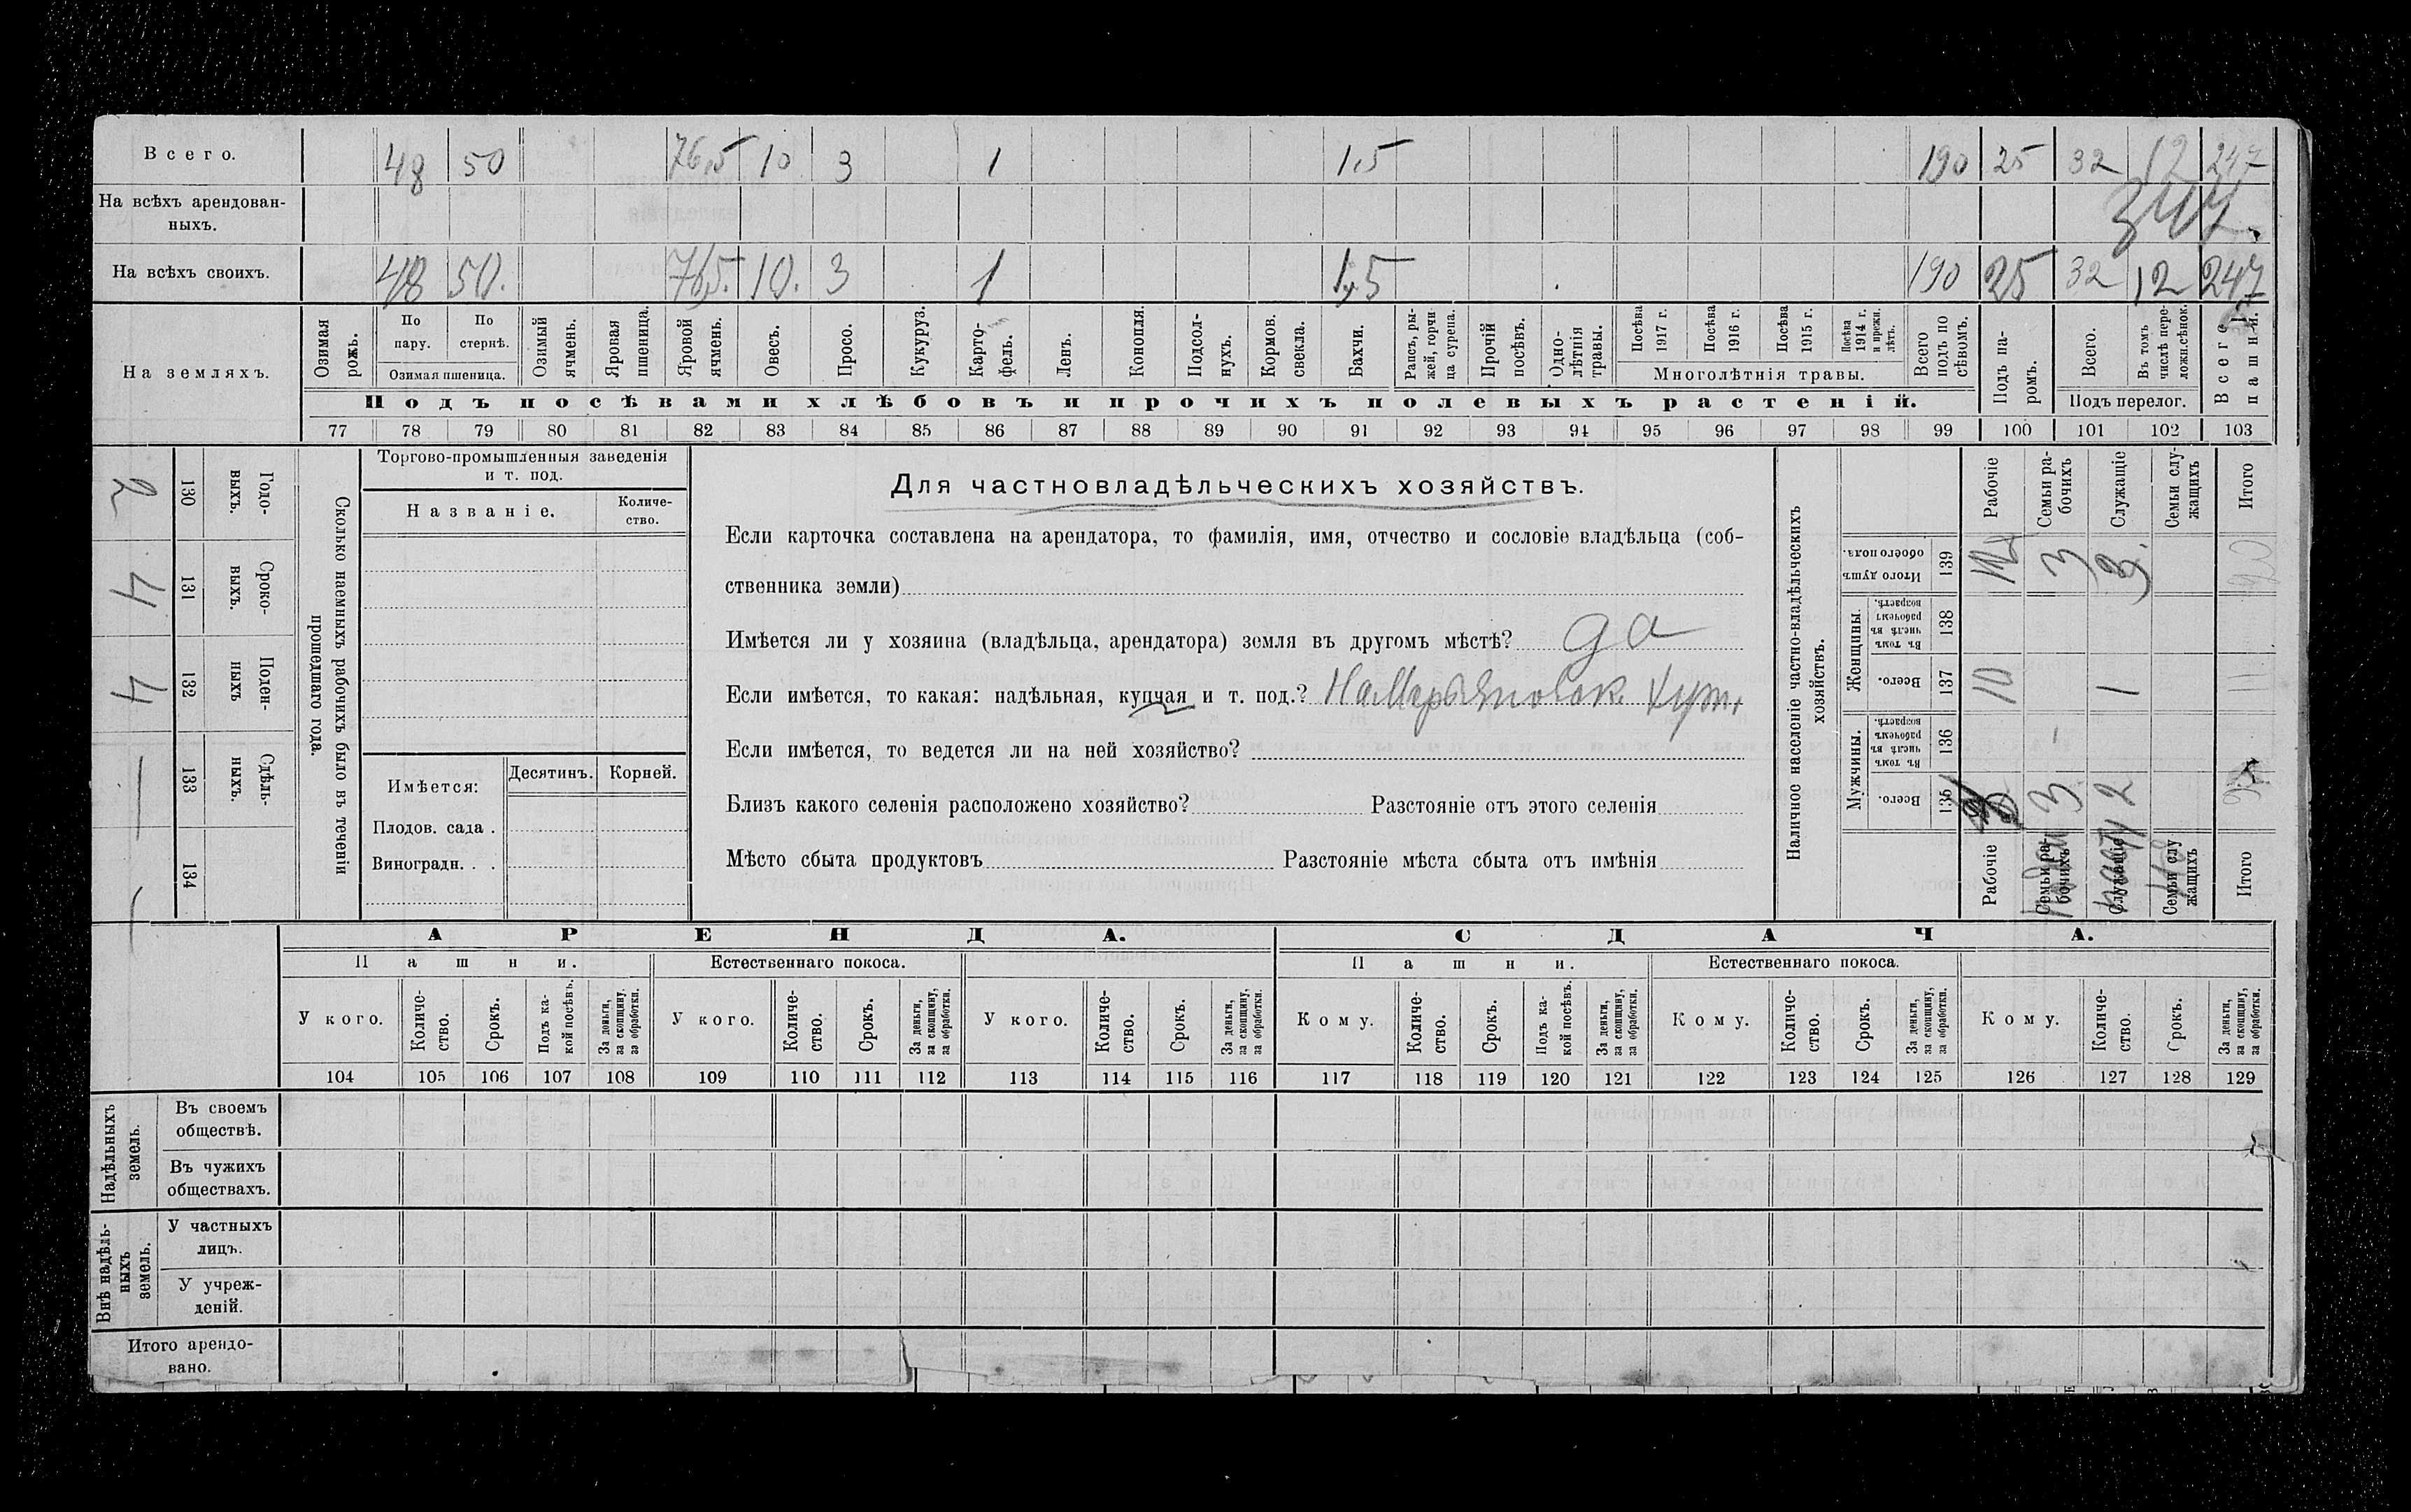 Всего. 48 50 76,5 10 3 1 1,5 190 25 32 12 247
На всѣхъ арендован-
ныхъ.
На всѣхъ своихъ. 48 50. 76,5. 10. 3 1 1,5 190 25 32 12 247
На земляхъ.
Озимая рожь.
По пару.
По стернѣ.
Озимая пшеница.
Озимый ячмень.
Яровая пшеница.
Яровой ячмень.
Овесъ.
Просо.
Кукуруз.
Карто-
фель.
Ленъ.
Конопля.
Подсол-
нухъ.
Кормов. свекла.
Бахчи.
Рапсъ, ры-
жей, горчи-
ца сурепа.
Прочій посѣвъ.
Одно-
лѣтнія травы.
Посѣва 1917 г.
Посѣва 1916 г.
Посѣва 1915 г.
Посѣва 1914 г. и прежн. лѣтъ.
Многолѣтнія травы.
Всего подъ по
сѣвомъ.
Подъ па-
ромъ.
Всего.
Въ томъ числѣ пере-
ложн.сѣнок.
Подъ перелог.
Всего пашни.
Подъ посѣвами хлѣбовъ и прочихъ полевыхъ растеній.
77 78 79 80 81 82 83 84 85 86 87 88 89 90 91 92 93 94 95 96 97 98 99 100 101 102 103
Сколько наемныхъ рабочихъ было въ теченіи
прошедшаго года.
Годо-
выхъ.
130
2
Сроко-
выхъ.
131
4
Поден-
ныхъ
132
4
Сдѣль-
ныхъ.
133
134
Торгово-промышленныя заведенія
и т. под.
Названіе.
Количе-
ство.
Имѣется:
Десятинъ.
Корней.
Плодов. сада .
Виноградн. . .
Для частновладѣльческихъ хозяйствъ.
Если карточка составлена на арендатора, то фамилія, имя, отчество и сословіе владѣльца (соб-
ственника земли)
Имѣется ли у хозяина (владѣльца, арендатора) земля въ другомъ мѣстѣ? да
Если имѣется, то какая: надѣльная, купчая и т. под.? хут.
Если имѣется, то ведется ли на ней хозяйство?
Близъ какого селенія расположено хозяйство? Разстояніе отъ этого селенія
Мѣсто сбыта продуктовъ Разстояніе мѣста сбыта отъ имѣнія
Наличное населеніе частно-владѣльческихъ
хозяйствъ.
Рабочіе
Семьи ра-
бочихъ
Служащіе
Семьи слу-
жащихъ
Итого
Итого душъ обоего пола.
139
3 3 20
Женщины.
Въ томъ числѣ въ рабочемъ возрастѣ.
138
Всего.
137
10 1 11
Мужчины.
Въ томъ числѣ въ рабочемъ возрастѣ.
136
Всего.
135
3 2
Рабочіе
Семьи ра-
бочихъ
Служащіе
Семьи слу
жащихъ
Итого
АРЕНДА.
СДАЧА.
Пашни.
Естественнаго покоса.
Пашни.
Естественнаго покоса.
У кого.
Количе-
ство.
Срокъ.
Подъ ка-
кой посѣвъ.
За деньги, за скопщину, за обработки.
У кого.
Количе-
ство.
Срокъ.
За деньги, за скопщину, за обработки.
У кого.
Количе-
ство.
Срокъ.
За деньги, за скопщину, за обработки.
Кому.
Количе-
ство.
Срокъ.
Подъ ка-
кой посѣвъ.
За деньги, за скопщину, за обработки.
Кому.
Количе-
ство.
Срокъ.
За деньги, за скопщину, за обработки.
Кому.
Количе-
ство.
Срокъ.
За деньги, за скопщину, за обработки.
104 105 106 107 108 109 110 111 112 113 114 115 116 117 118 119 120 121 122 123 124 125 126 127 128 129
Надѣльныхъ
земель.
Въ своемъ
обществѣ.
Въ чужихъ
обществахъ.
Внѣ надѣль-
ныхъ
земель.
У частныхъ
лицъ.
У учреж-
деній.
Итого арендо-
вано.